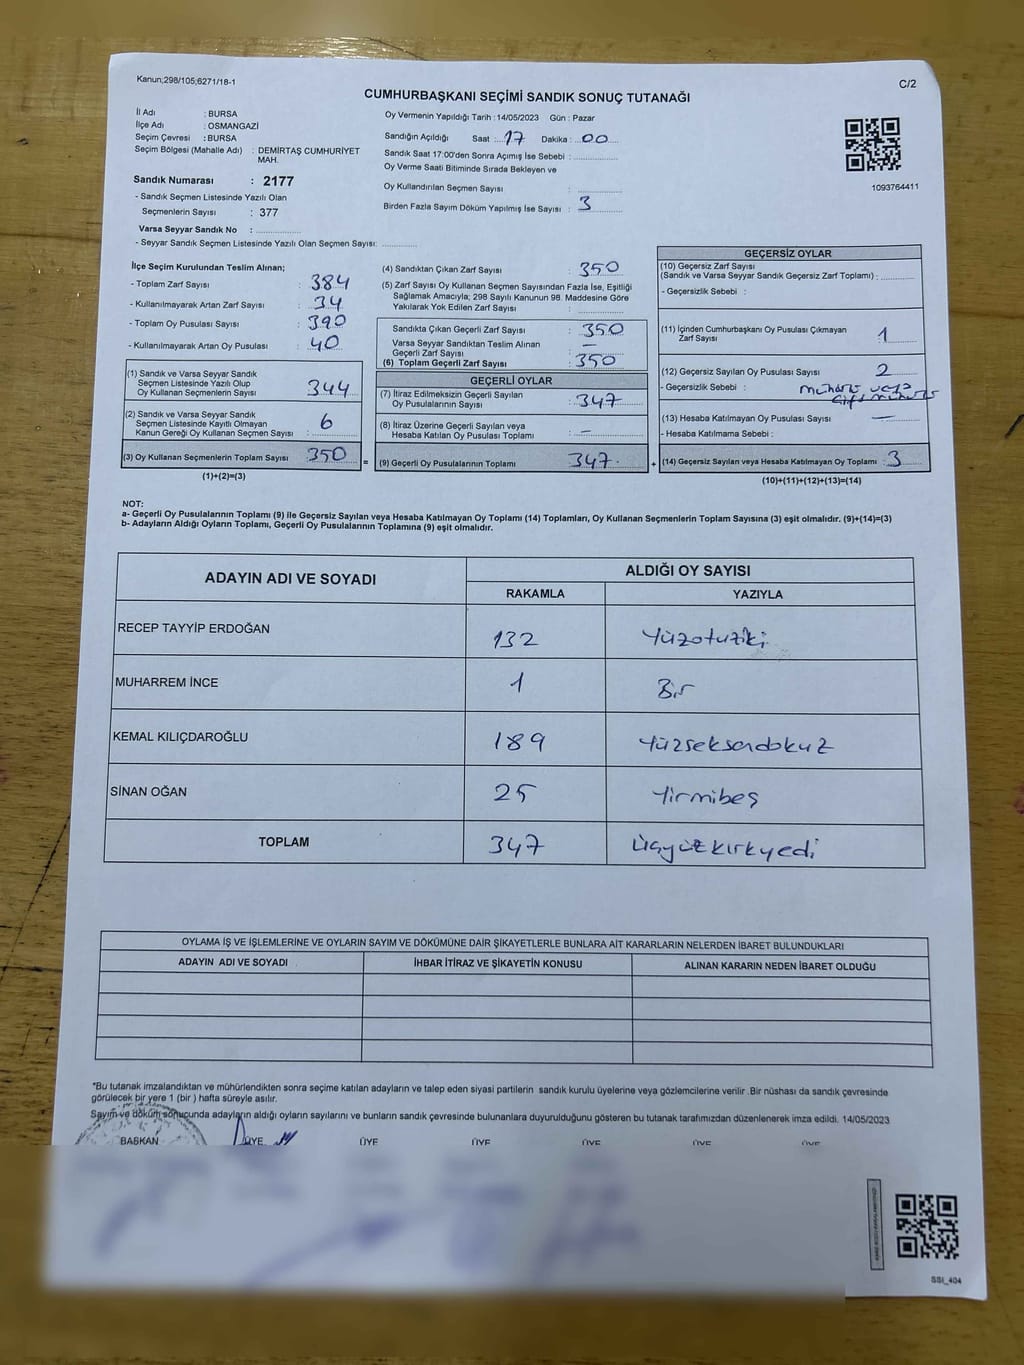 Kanun;298/105;6271/18-1
C/2
CUMHURBAŞKANI SEÇİMİ SANDIK SONUÇ TUTANAĞI
İl Adı : BURSA
İlçe Adı : OSMANGAZİ
Seçim Çevresi : BURSA
Seçim Bölgesi (Mahalle Adı) : DEMİRTAŞ CUMHURİYET
MAH.
Sandık Numarası : 2177
- Sandık Seçmen Listesinde Yazılı Olan
Seçmenlerin Sayısı : 377
Varsa Seyyar Sandık No :
- Seyyar Sandık Seçmen Listesinde Yazılı Olan Seçmen Sayısı:
Oy Vermenin Yapıldığı Tarih : 14/05/2023 Gün : Pazar
Sandığın Açıldığı Saat : 17 Dakika : 00
Sandık Saat 17:00'den Sonra Açımış İse Sebebi :
Oy Verme Saati Bitiminde Sırada Bekleyen ve
Oy Kullandırılan Seçmen Sayısı :
Birden Fazla Sayım Döküm Yapılmış İse Sayısı : 3
1093764411
İlçe Seçim Kurulundan Teslim Alınan;
- Toplam Zarf Sayısı : 384
- Kullanılmayarak Artan Zarf Sayısı : 34
- Toplam Oy Pusulası Sayısı : 390
- Kullanılmayarak Artan Oy Pusulası : 40
(1) Sandık ve Varsa Seyyar Sandık
Seçmen Listesinde Yazılı Olup
Oy Kullanan Seçmenlerin Sayısı : 344
(2) Sandık ve Varsa Seyyar Sandık
Seçmen Listesinde Kayıtlı Olmayan
Kanun Gereği Oy Kullanan Seçmen Sayısı : 6
(3) Oy Kullanan Seçmenlerin Toplam Sayısı : 350
(1)+(2)=(3)
(4) Sandıktan Çıkan Zarf Sayısı : 350
(5) Zarf Sayısı Oy Kullanan Seçmen Sayısından Fazla İse, Eşitliği
Sağlamak Amacıyla; 298 Sayılı Kanunun 98. Maddesine Göre
Yakılarak Yok Edilen Zarf Sayısı :
Sandıkta Çıkan Geçerli Zarf Sayısı : 350
Varsa Seyyar Sandıktan Teslim Alınan
Geçerli Zarf Sayısı : –
(6) Toplam Geçerli Zarf Sayısı : 350
GEÇERLİ OYLAR
(7) İtiraz Edilmeksizin Geçerli Sayılan
Oy Pusulalarının Sayısı : 347
(8) İtiraz Üzerine Geçerli Sayılan veya
Hesaba Katılan Oy Pusulası Toplamı : –
= (9) Geçerli Oy Pusulalarının Toplamı : 347
GEÇERSİZ OYLAR
(10) Geçersiz Zarf Sayısı
(Sandık ve Varsa Seyyar Sandık Geçersiz Zarf Toplamı) :
- Geçersizlik Sebebi :
(11) İçinden Cumhurbaşkanı Oy Pusulası Çıkmayan
Zarf Sayısı : 1
(12) Geçersiz Sayılan Oy Pusulası Sayısı : 2
- Geçersizlik Sebebi :
(13) Hesaba Katılmayan Oy Pusulası Sayısı : –
- Hesaba Katılmama Sebebi :
+ (14) Geçersiz Sayılan veya Hesaba Katılmayan Oy Toplamı : 3
(10)+(11)+(12)+(13)=(14)
NOT:
a- Geçerli Oy Pusulalarının Toplamı (9) ile Geçersiz Sayılan veya Hesaba Katılmayan Oy Toplamı (14) Toplamları, Oy Kullanan Seçmenlerin Toplam Sayısına (3) eşit olmalıdır. (9)+(14)=(3)
b- Adayların Aldığı Oyların Toplamı, Geçerli Oy Pusulalarının Toplamına (9) eşit olmalıdır.
ADAYIN ADI VE SOYADI
ALDIĞI OY SAYISI
RAKAMLA YAZIYLA
RECEP TAYYİP ERDOĞAN 132 Yüzotuziki
MUHARREM İNCE 1 Bir
KEMAL KILIÇDAROĞLU 189 Yüzseksendokuz
SİNAN OĞAN 25 Yirmibeş
TOPLAM 347 Üçyüzkırkyedi
OYLAMA İŞ VE İŞLEMLERİNE VE OYLARIN SAYIM VE DÖKÜMÜNE DAİR ŞİKAYETLERLE BUNLARA AİT KARARLARIN NELERDEN İBARET BULUNDUKLARI
ADAYIN ADI VE SOYADI İHBAR İTİRAZ VE ŞİKAYETİN KONUSU ALINAN KARARIN NEDEN İBARET OLDUĞU
*Bu tutanak imzalandıktan ve mühürlendikten sonra seçime katılan adayların ve talep eden siyasi partilerin sandık kurulu üyelerine veya gözlemcilerine verilir .Bir nüshası da sandık çevresinde
görülecek bir yere 1 (bir ) hafta süreyle asılır.
Sayım ve döküm sonucunda adayların aldığı oyların sayılarını ve bunların sandık çevresinde bulunanlara duyurulduğunu gösteren bu tutanak tarafımızdan düzenlenerek imza edildi. 14/05/2023
BAŞKAN ÜYE ÜYE ÜYE ÜYE ÜYE ÜYE
SSI_404